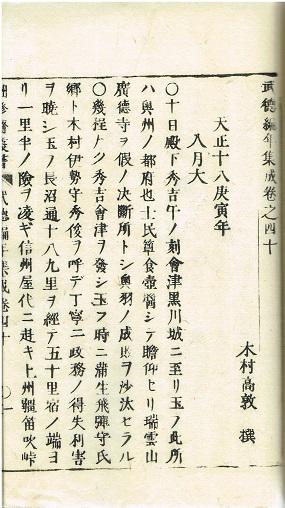 武德編年集成卷之四十
木村高敦 撰
天正十八庚寅年
八月大
○十日殿下秀吉午ノ刻會津黒川城ニ至リ玉フ此所
ハ奥州ノ都府也士民簞食壺醬シテ瞻仰ヒリ瑞雲山
廣德寺ヲ假ノ决斷所トシ奥羽ノ成敗ヲ沙汰セラル
○幾程ナク秀吉會津ヲ發シ玉フ時ニ蒲生飛彈守氏
郷ト木村伊勢守秀俊ヲ呼デ丁寧ニ政務ノ得失利害
ヲ曉シ玉フ長沼通十八九里ヲ經テ五十里宿ノ端ヨ
リ一里半ノ險ヲ凌ギ信州屋代ニ赴キ上州 笛吹峠
武德編年集成卷四十